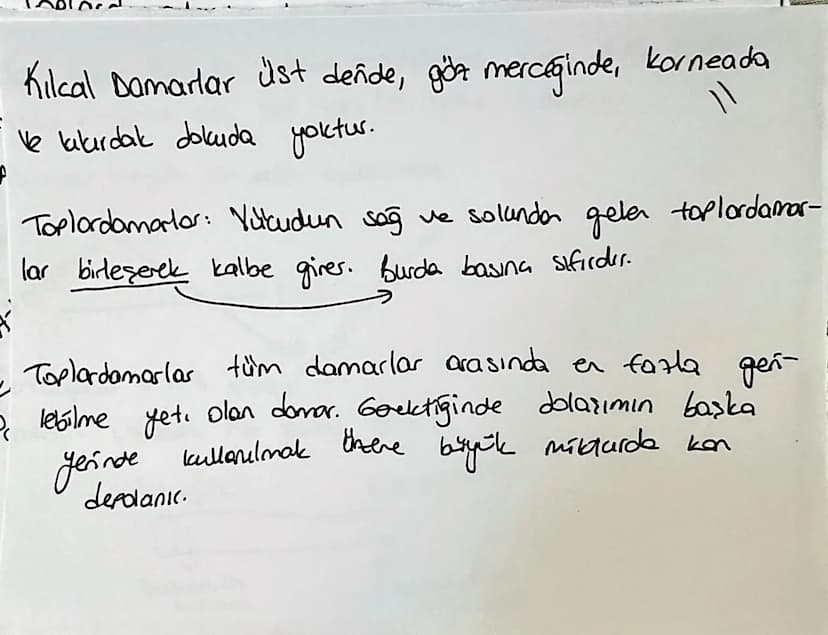 Kılcal Damarlar üst deride, göz merceğinde, korneada
ve kıkırdak dokuda yoktur.
Toplardamarlar: Vücudun sağ ve solundan gelen toplardamar-
lar birleşerek kalbe girer. Burda basınç sıfırdır.
Toplardamarlar tüm damarlar arasında en fazla geri-
lebilme yeti olan damar. Gerektiğinde dolaşımın başka
yerinde kullanılmak üzere büyük miktarda kan
depolanır.